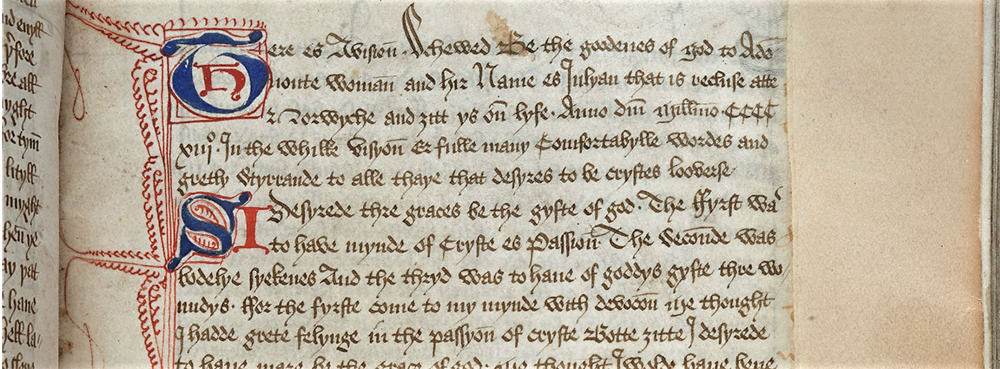 nd enyss
There es Avisioun Schewed Be the goodenes of god to Ade
uoute womann and hir Name es Julyan that is recluse atte
Norwyche and zitt ys oun lyfe. Anno dni millmo CCCC
xiijo. In the whilke visyoun Er fulle many Comfortabylle wordes and
gretly Styrrande to alle thaye that desyres to be crystes looverse
I Desyrede thre graces be the gyfte of god. The ffyrst was
to have mynde of Cryste es Passioun. The secounde was
bodelye syekenes And the thryd was to haue of goddys gyfte thre wo-
undys. ffor the fyrste come to my mynde with devocoun me thought
I hadde grete felynge in the passyoun of cryste Botte zitte I desyrede
to haue mare be the grace of god. me thought I wolde haue bene